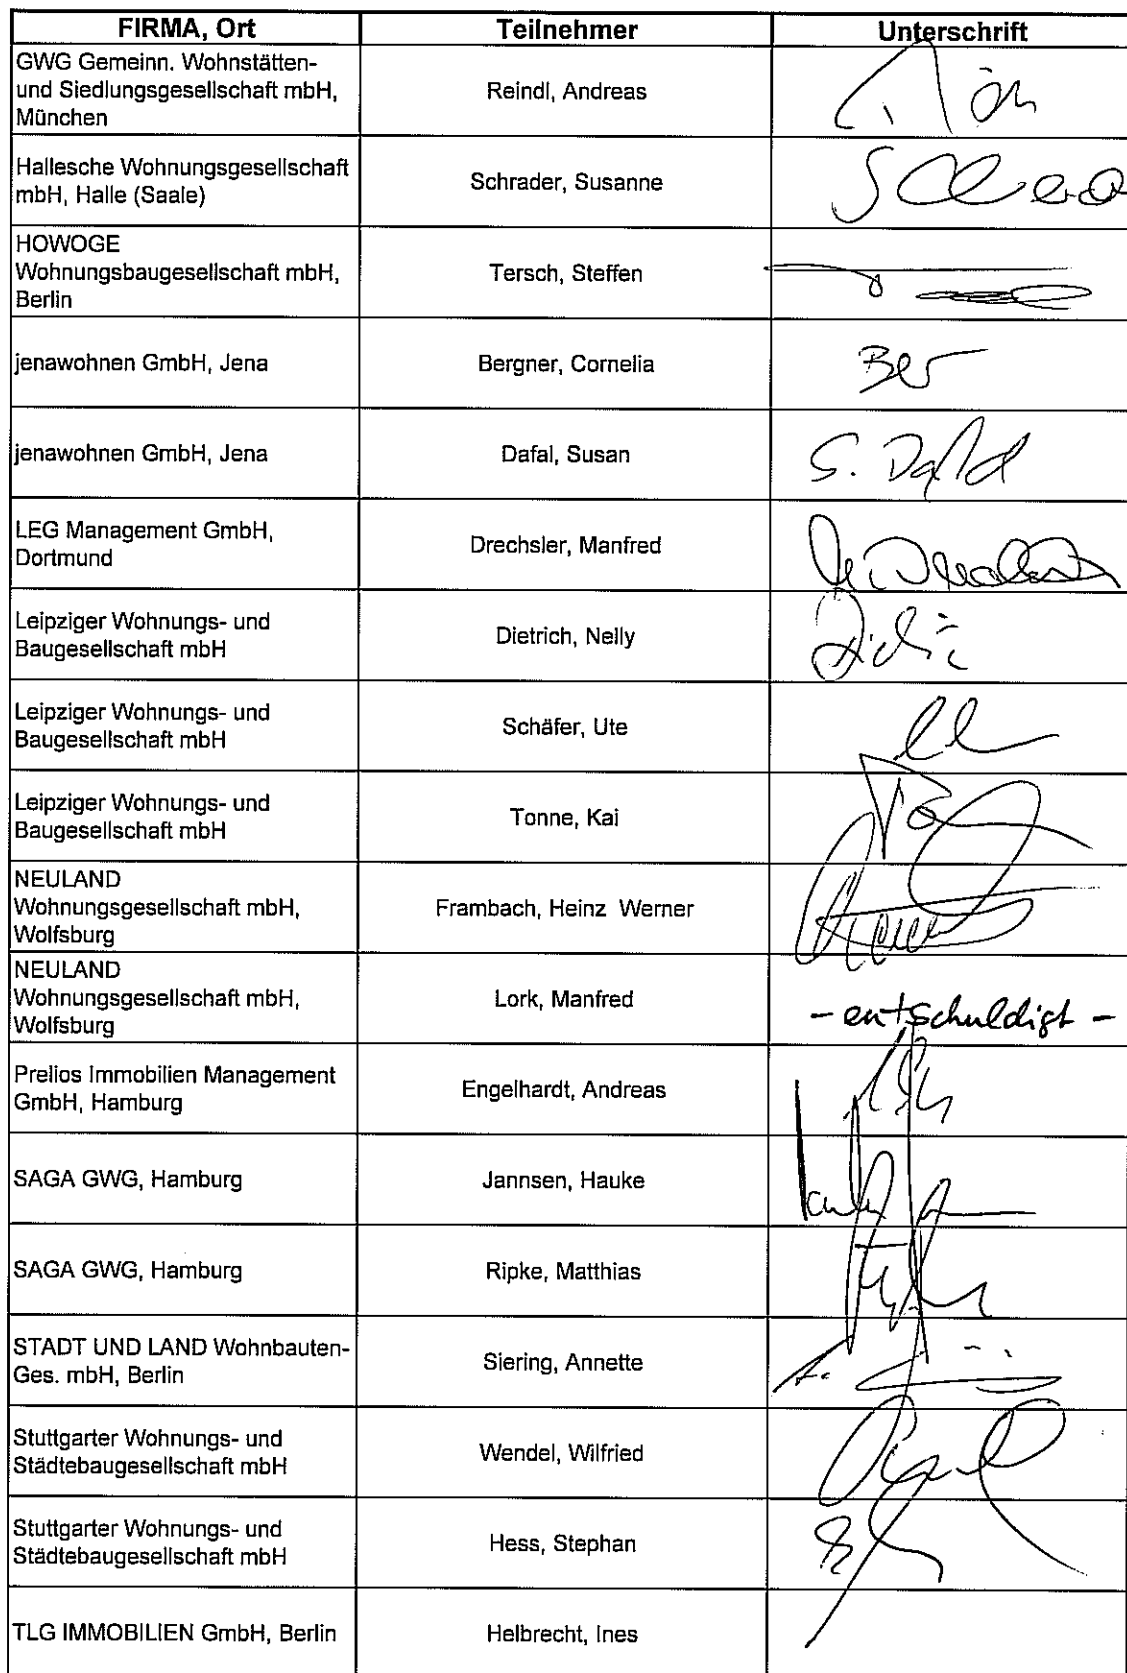 FIRMA, Ort Teilnehmer Unterschrift
GWG Gemeinn. Wohnstätten-
und Siedlungsgesellschaft mbH,
München
Reindl, Andreas
Hallesche Wohnungsgesellschaft
mbH, Halle (Saale)
Schrader, Susanne
HOWOGE
Wohnungsbaugesellschaft mbH,
Berlin
Tersch, Steffen
jenawohnen GmbH, Jena
Bergner, Cornelia
Ber
jenawohnen GmbH, Jena
Dafal, Susan
S. Dafal
LEG Management GmbH,
Dortmund
Drechsler, Manfred
Leipziger Wohnungs- und
Baugesellschaft mbH
Dietrich, Nelly
Leipziger Wohnungs- und
Baugesellschaft mbH
Schäfer, Ute
Leipziger Wohnungs- und
Baugesellschaft mbH
Tonne, Kai
NEULAND
Wohnungsgesellschaft mbH,
Wolfsburg
Frambach, Heinz Werner
NEULAND
Wohnungsgesellschaft mbH,
Wolfsburg
Lork, Manfred
- entschuldigt -
Prelios Immobilien Management
GmbH, Hamburg
Engelhardt, Andreas
SAGA GWG, Hamburg
Jannsen, Hauke
SAGA GWG, Hamburg
Ripke, Matthias
STADT UND LAND Wohnbauten-
Ges. mbH, Berlin
Siering, Annette
Stuttgarter Wohnungs- und
Städtebaugesellschaft mbH
Wendel, Wilfried
Stuttgarter Wohnungs- und
Städtebaugesellschaft mbH
Hess, Stephan
TLG IMMOBILIEN GmbH, Berlin
Helbrecht, Ines